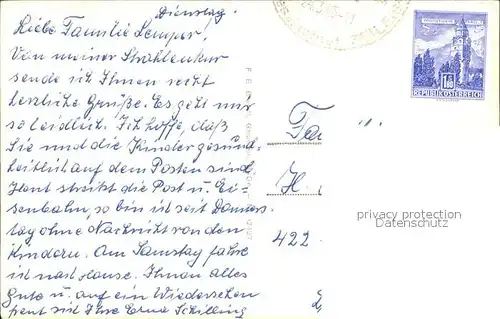 Dienstag.
Liebe Familie Kemper!
Von meiner Strahlenkur
sende ich Ihnen recht
herzliche Grüße. Es geht mir
so leidlich. Ich hoffe, daß
Sie und die Kinder gesund-
heitlich auf dem Posten sind.
Heut streikt die Post u. Ei-
senbahn, so bin ich seit Donners-
tag ohne Nachricht von den
Kindern. Am Samstag fahre
ich nach Hause. Ihnen alles
Gute u. auf ein Wiedersehen
freut sich Ihre Erna Schilling
S 1.80
REPUBLIK ÖSTERREICH
Fa
H.
422
privacy protection
Datenschutz